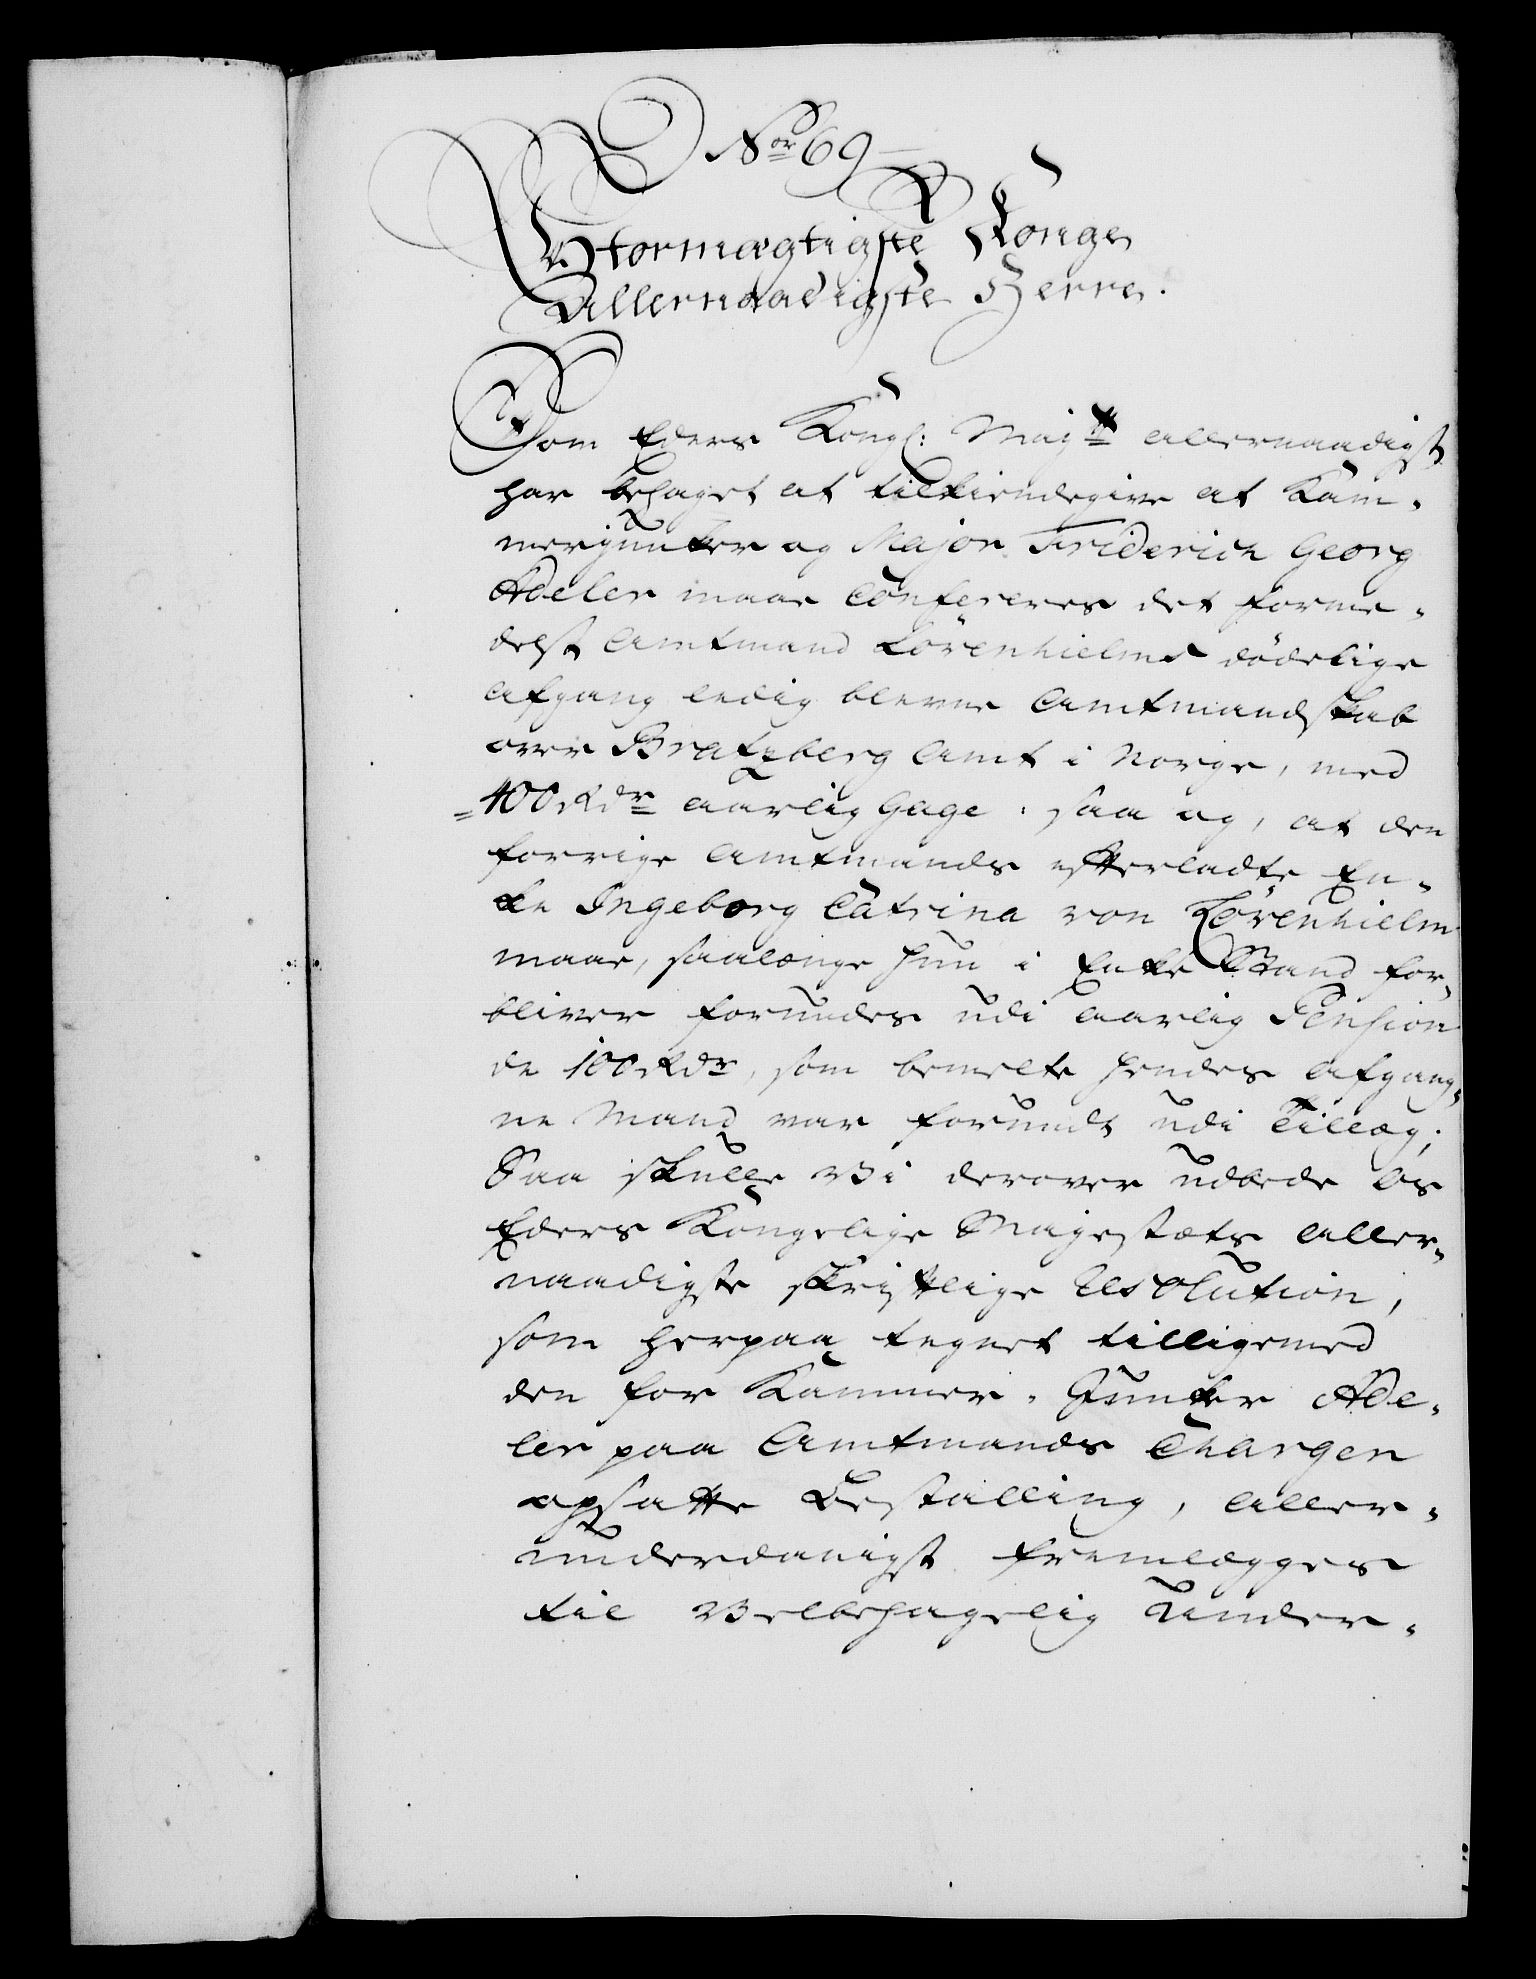 No͞r 69
Stormægtigste Konge
Allernaadigste Herre.
Som Eders Kongl: Maj:tt allernaadigst
har behaget at tilkiendegive at Kam-
merjunker og Major Friderich Georg
Adeler maae confereres det forme-
delst Amtmand Lövenhielms dödelige
afgang ledig blevne Amtmandskab
over Bratzberg Amt i Norge, med
400 Rdr aarlig Gage, saa og, at den
forrige Amtmands efterladte En-
ke Ingeborg Catrina von Lövenhielm
maae, saalænge hun i Enke Stand for-
bliver forundes udi aarlig Pension
de 100 Rdr, som bemelte hendes afgang-
ne Mand var forundt udi Tillæg;
Saa skulle Vi derover udbede os
Eders Kongelige Majestæts aller-
naadigste skriftlige Resolution,
som herpaa tegnet tilligemed
den for Kammer-Junker Ade-
ler paa Amtmands Chargen
opsatte Bestalling, aller-
underdanigst fremlægges
til Velbehagelig Under-